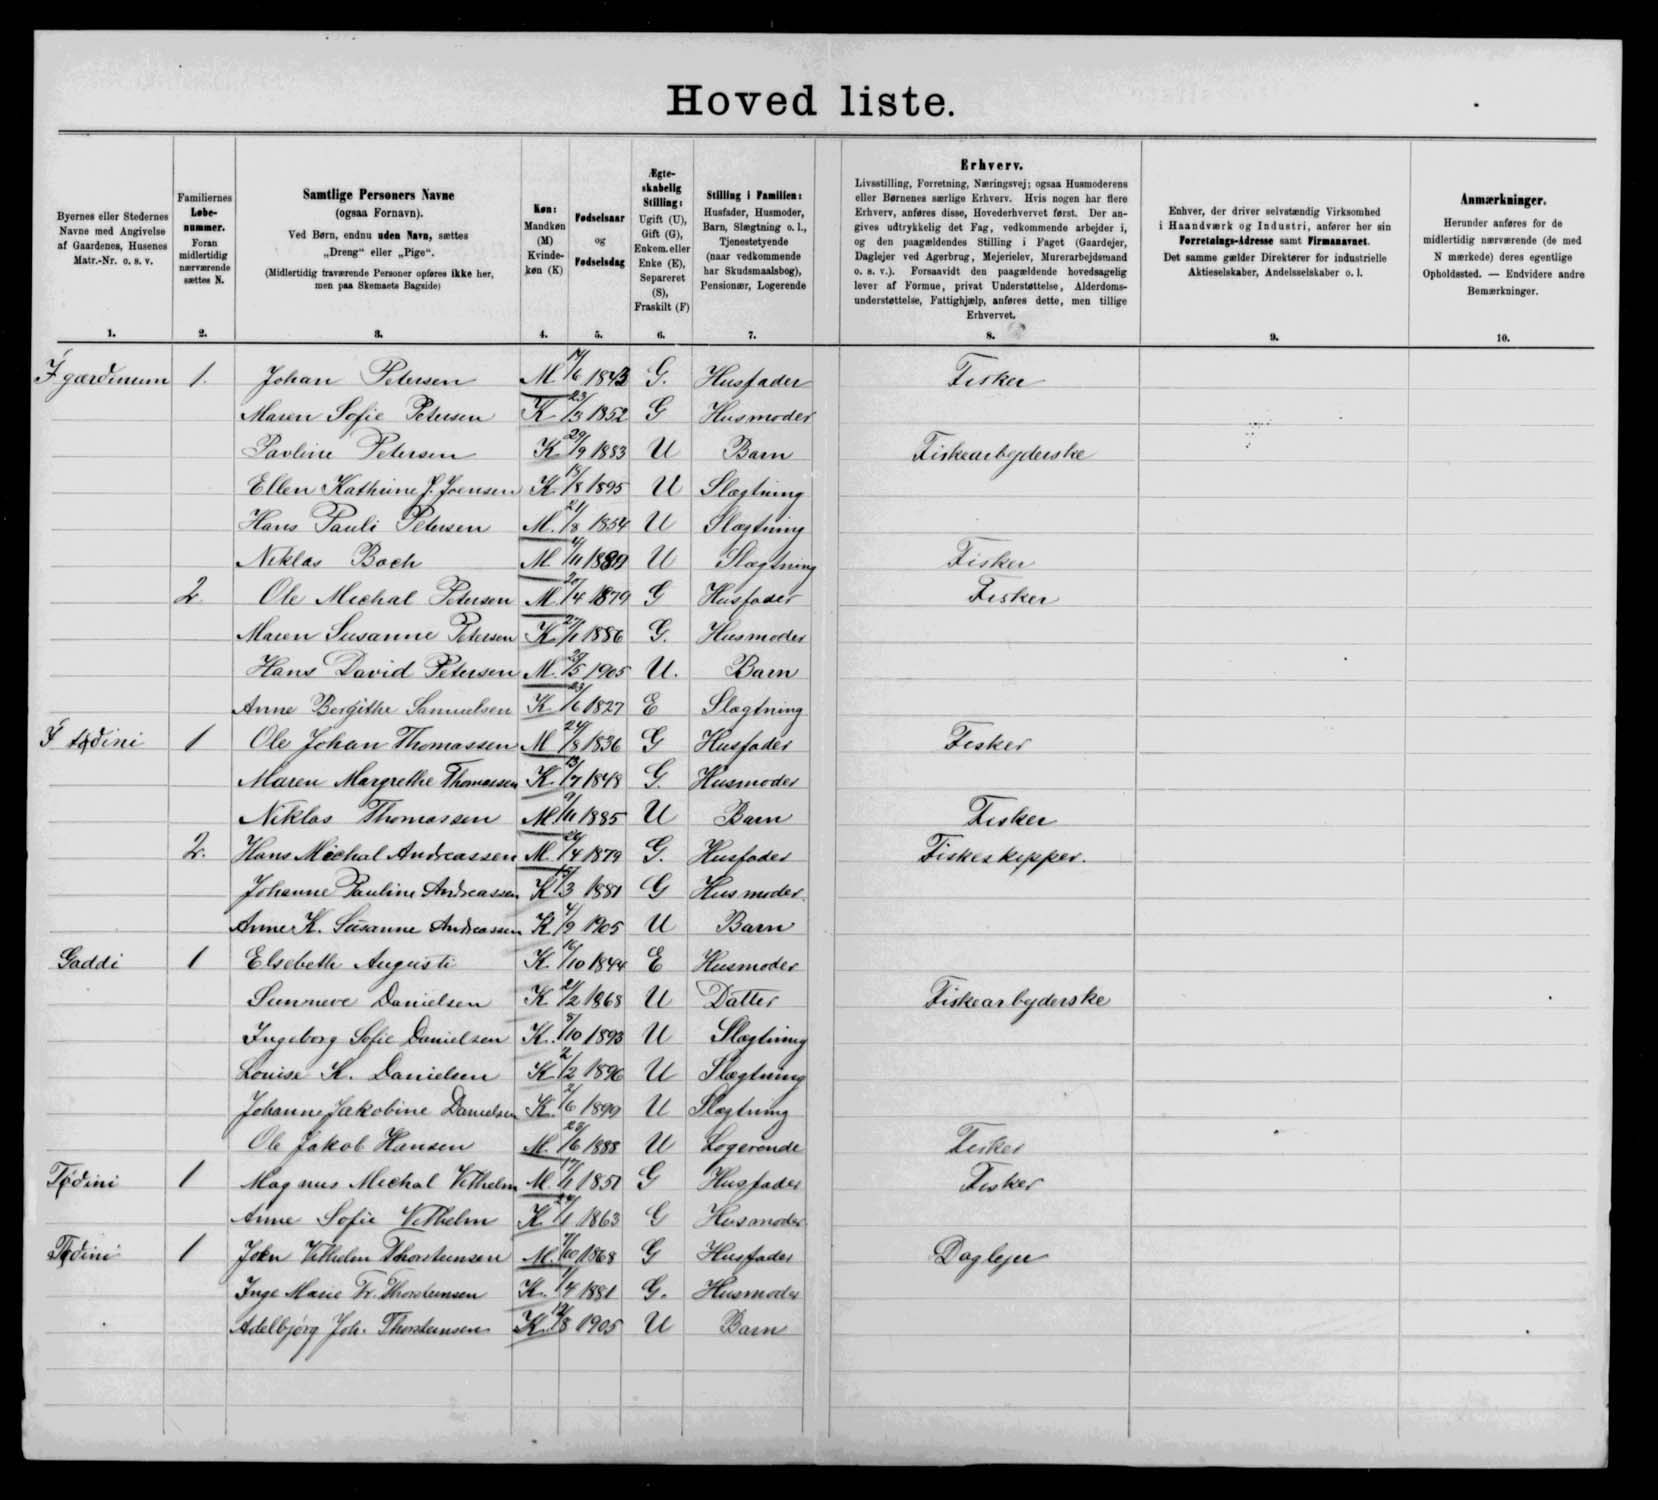 Hoved liste.
Byernes eller Stedernes Navne med Angivelse af Gaardenes, Husenes Matr.-Nr. o. s. v.
Familiernes Løbe-nummer. Foran midlertidig nærværende sættes N.
Samtlige Personers Navne (ogsaa Fornavn). Ved Børn, endnu uden Navn, sættes „Dreng“ eller „Pige“. (Midlertidig fraværende Personer opføres ikke her, men paa Skemaets Bagside)
Køn: Mandkøn (M) Kvinde-køn (K)
Fødselsaar og Fødselsdag
Ægte-skabelig Stilling: Ugift (U), Gift (G), Enkem. eller Enke (E), Separeret (S), Fraskilt (F)
Stilling i Familien: Husfader, Husmoder, Barn, Slægtning o. l., Tjenestetyende (naar vedkommende har Skudsmaalsbog), Pensionær, Logerende
Erhverv. Livsstilling, Forretning, Næringsvej; ogsaa Husmoderens eller Børnenes særlige Erhverv. Hvis nogen har flere Erhverv, anføres disse, Hovederhvervet først. Der angives udtrykkelig det Fag, vedkommende arbejder i, og den paagældendes Stilling i Faget (Gaardejer, Daglejer ved Agerbrug, Mejerielev, Murerarbejdsmand o. s. v.). Forsaavidt den paagældende hovedsagelig lever af Formue, privat Understøttelse, Alderdoms-understøttelse, Fattighjælp, anføres dette, men tillige Erhvervet.
Enhver, der driver selvstændig Virksomhed i Haandværk og Industri, anfører her sin Forretnings-Adresse samt Firmanavnet. Det samme gælder Direktører for industrielle Aktieselskaber, Andelsselskaber o. l.
Anmærkninger. Herunder anføres for de midlertidig nærværende (de med N mærkede) deres egentlige Opholdssted. — Endvidere andre Bemærkninger.
1. 2. 3. 4. 5. 6. 7. 8. 9. 10.
Í gærdinum 1. Johan Petersen M 14/6 1843 G. Husfader Fisker
Maren Sofie Petersen K 23/3 1852 G Husmoder
Pavline Petersen K. 29/9 1883 U Barn Fiskearbejderske
Ellen Kathrine J. Joensen K. 1895 U Slægtning
Hans Pauli Petersen M. 21/8 1854 U Slægtning
Niklas Bach M 1889 U Slægtning Fisker
2. Ole Michal Petersen M. 20/4 1879 G Husfader Fisker
Maren Susanne Petersen K 27/1 1886 G. Husmoder
Hans David Petersen M. 1905 U. Barn
Anne Bergithe Samuelsen K 23/6 1827 E Slægtning
Í tødini 1 Ole Johan Thomassen M 24/8 1836 G Husfader Fisker
Maren Margrethe Thomassen K. 13/7 1848 G. Husmoder
Niklas Thomassen M 9/11 1885 U Barn Fisker
2. Hans Michal Andreassen M. 1879 G. Husfader Fiskeskipper.
Johanne Pauline Andreassen K 1881 G Husmoder.
Anne K. Susanne Andreassen K 4/9 1905 U Barn
Gaddi 1 Elsebeth Augusti K. 16/10 1844 E Husmoder
Sunneve Danielsen K 21/2 1868 U Datter Fiskearbejderske
Ingeborg Sofie Danielsen K. 8/10 1893 U Slægtning
Louise K. Danielsen K 2/2 1896 U Slægtning
Johanne Jakobine Danielsen K. 2/6 1899 U Slægtning
Ole Jakob Hansen M. 1888 U Logerende Fisker
Tødini 1 Magnus Michal Vilhelm M. 17/1 1851 G Husfader Fisker
Anne Sofie Vilhelm K 1863 G Husmoder
Tødini 1 Joen Vilhelm Thorsteinsen M. 1868 G Husfader Daglejer
Inge Marie Fr. Thorsteinsen K. 1/4 1881 G. Husmoder
Adelbjørg Joh. Thorsteinsen K. 12/8 1905 U Barn